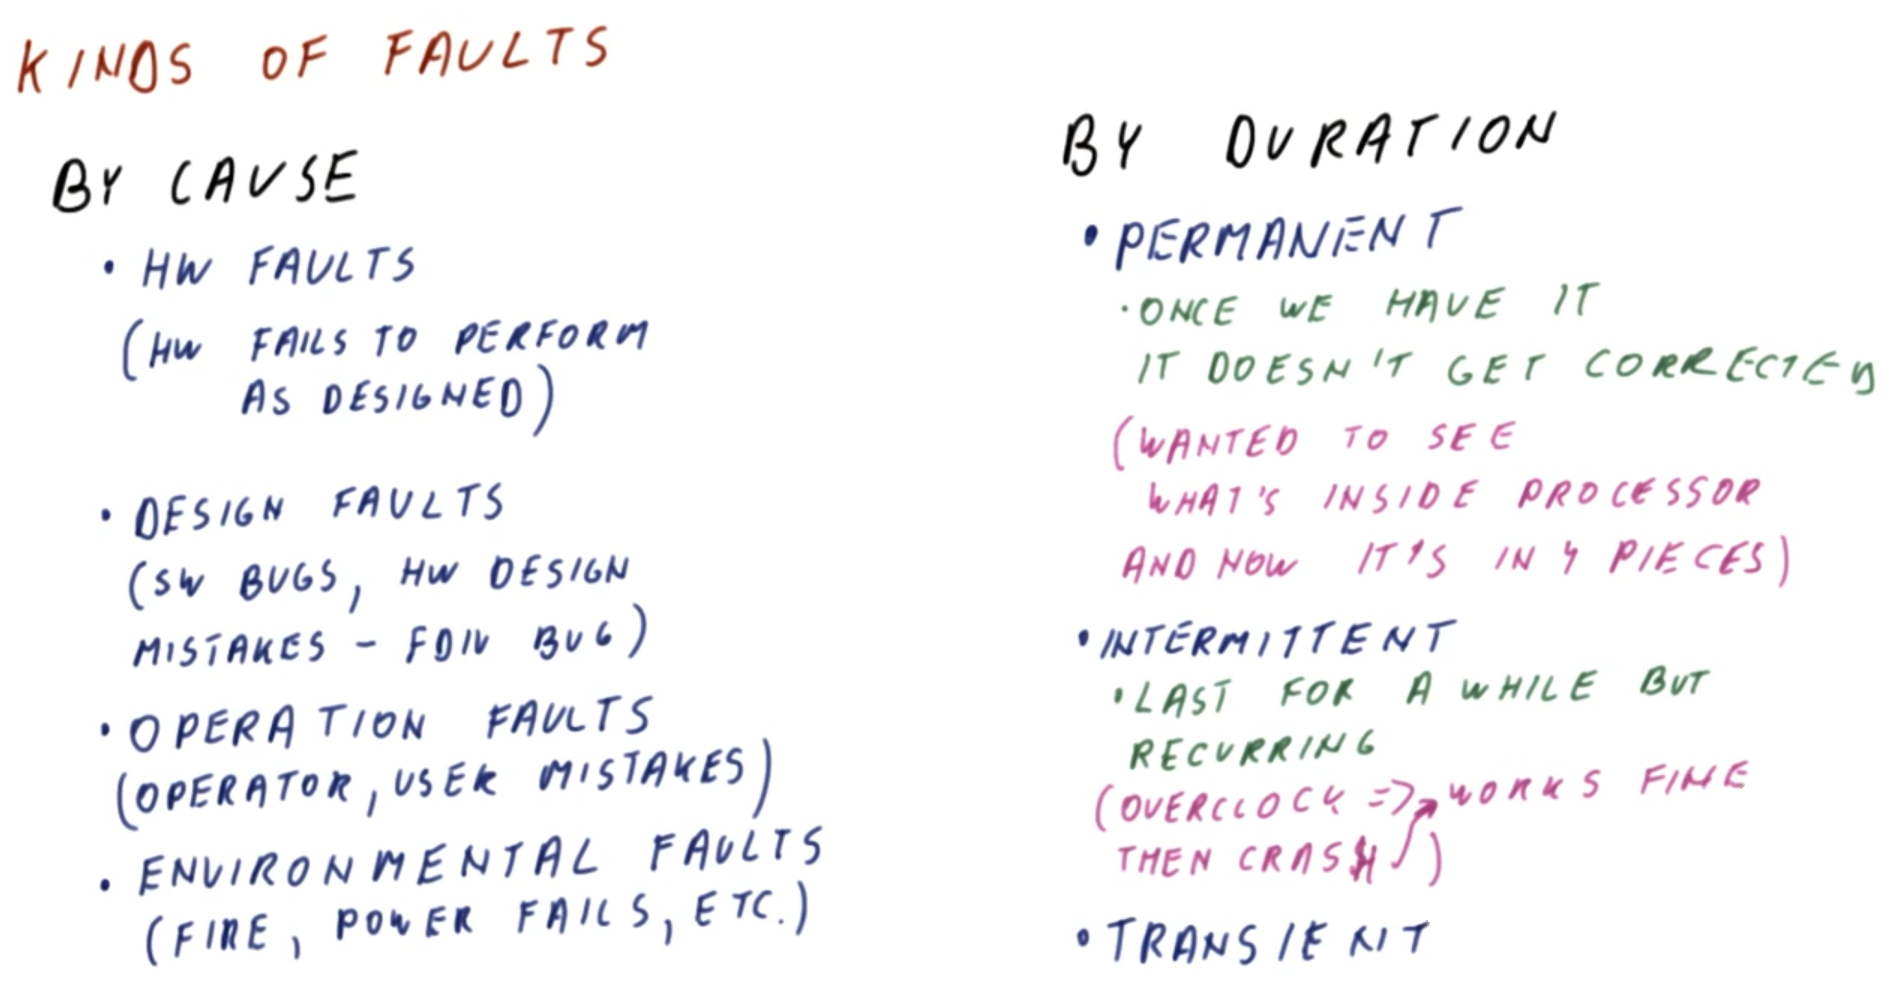 KINDS OF FAULTS
BY CAUSE
• HW FAULTS
(HW FAILS TO PERFORM
AS DESIGNED)
• DESIGN FAULTS
(SW BUGS, HW DESIGN
MISTAKES - FDIV BUG)
• OPERATION FAULTS
(OPERATOR, USER MISTAKES)
• ENVIRONMENTAL FAULTS
(FIRE, POWER FAILS, ETC.)
BY DURATION
• PERMANENT
• ONCE WE HAVE IT
IT DOESN'T GET CORRECTEY
(WANTED TO SEE
WHAT'S INSIDE PROCESSOR
AND NOW IT'S IN 4 PIECES)
• INTERMITTENT
• LAST FOR A WHILE BUT
RECURRING
(OVERCLOCK => WORKS FINE
THEN CRASH)
• TRANSIENT